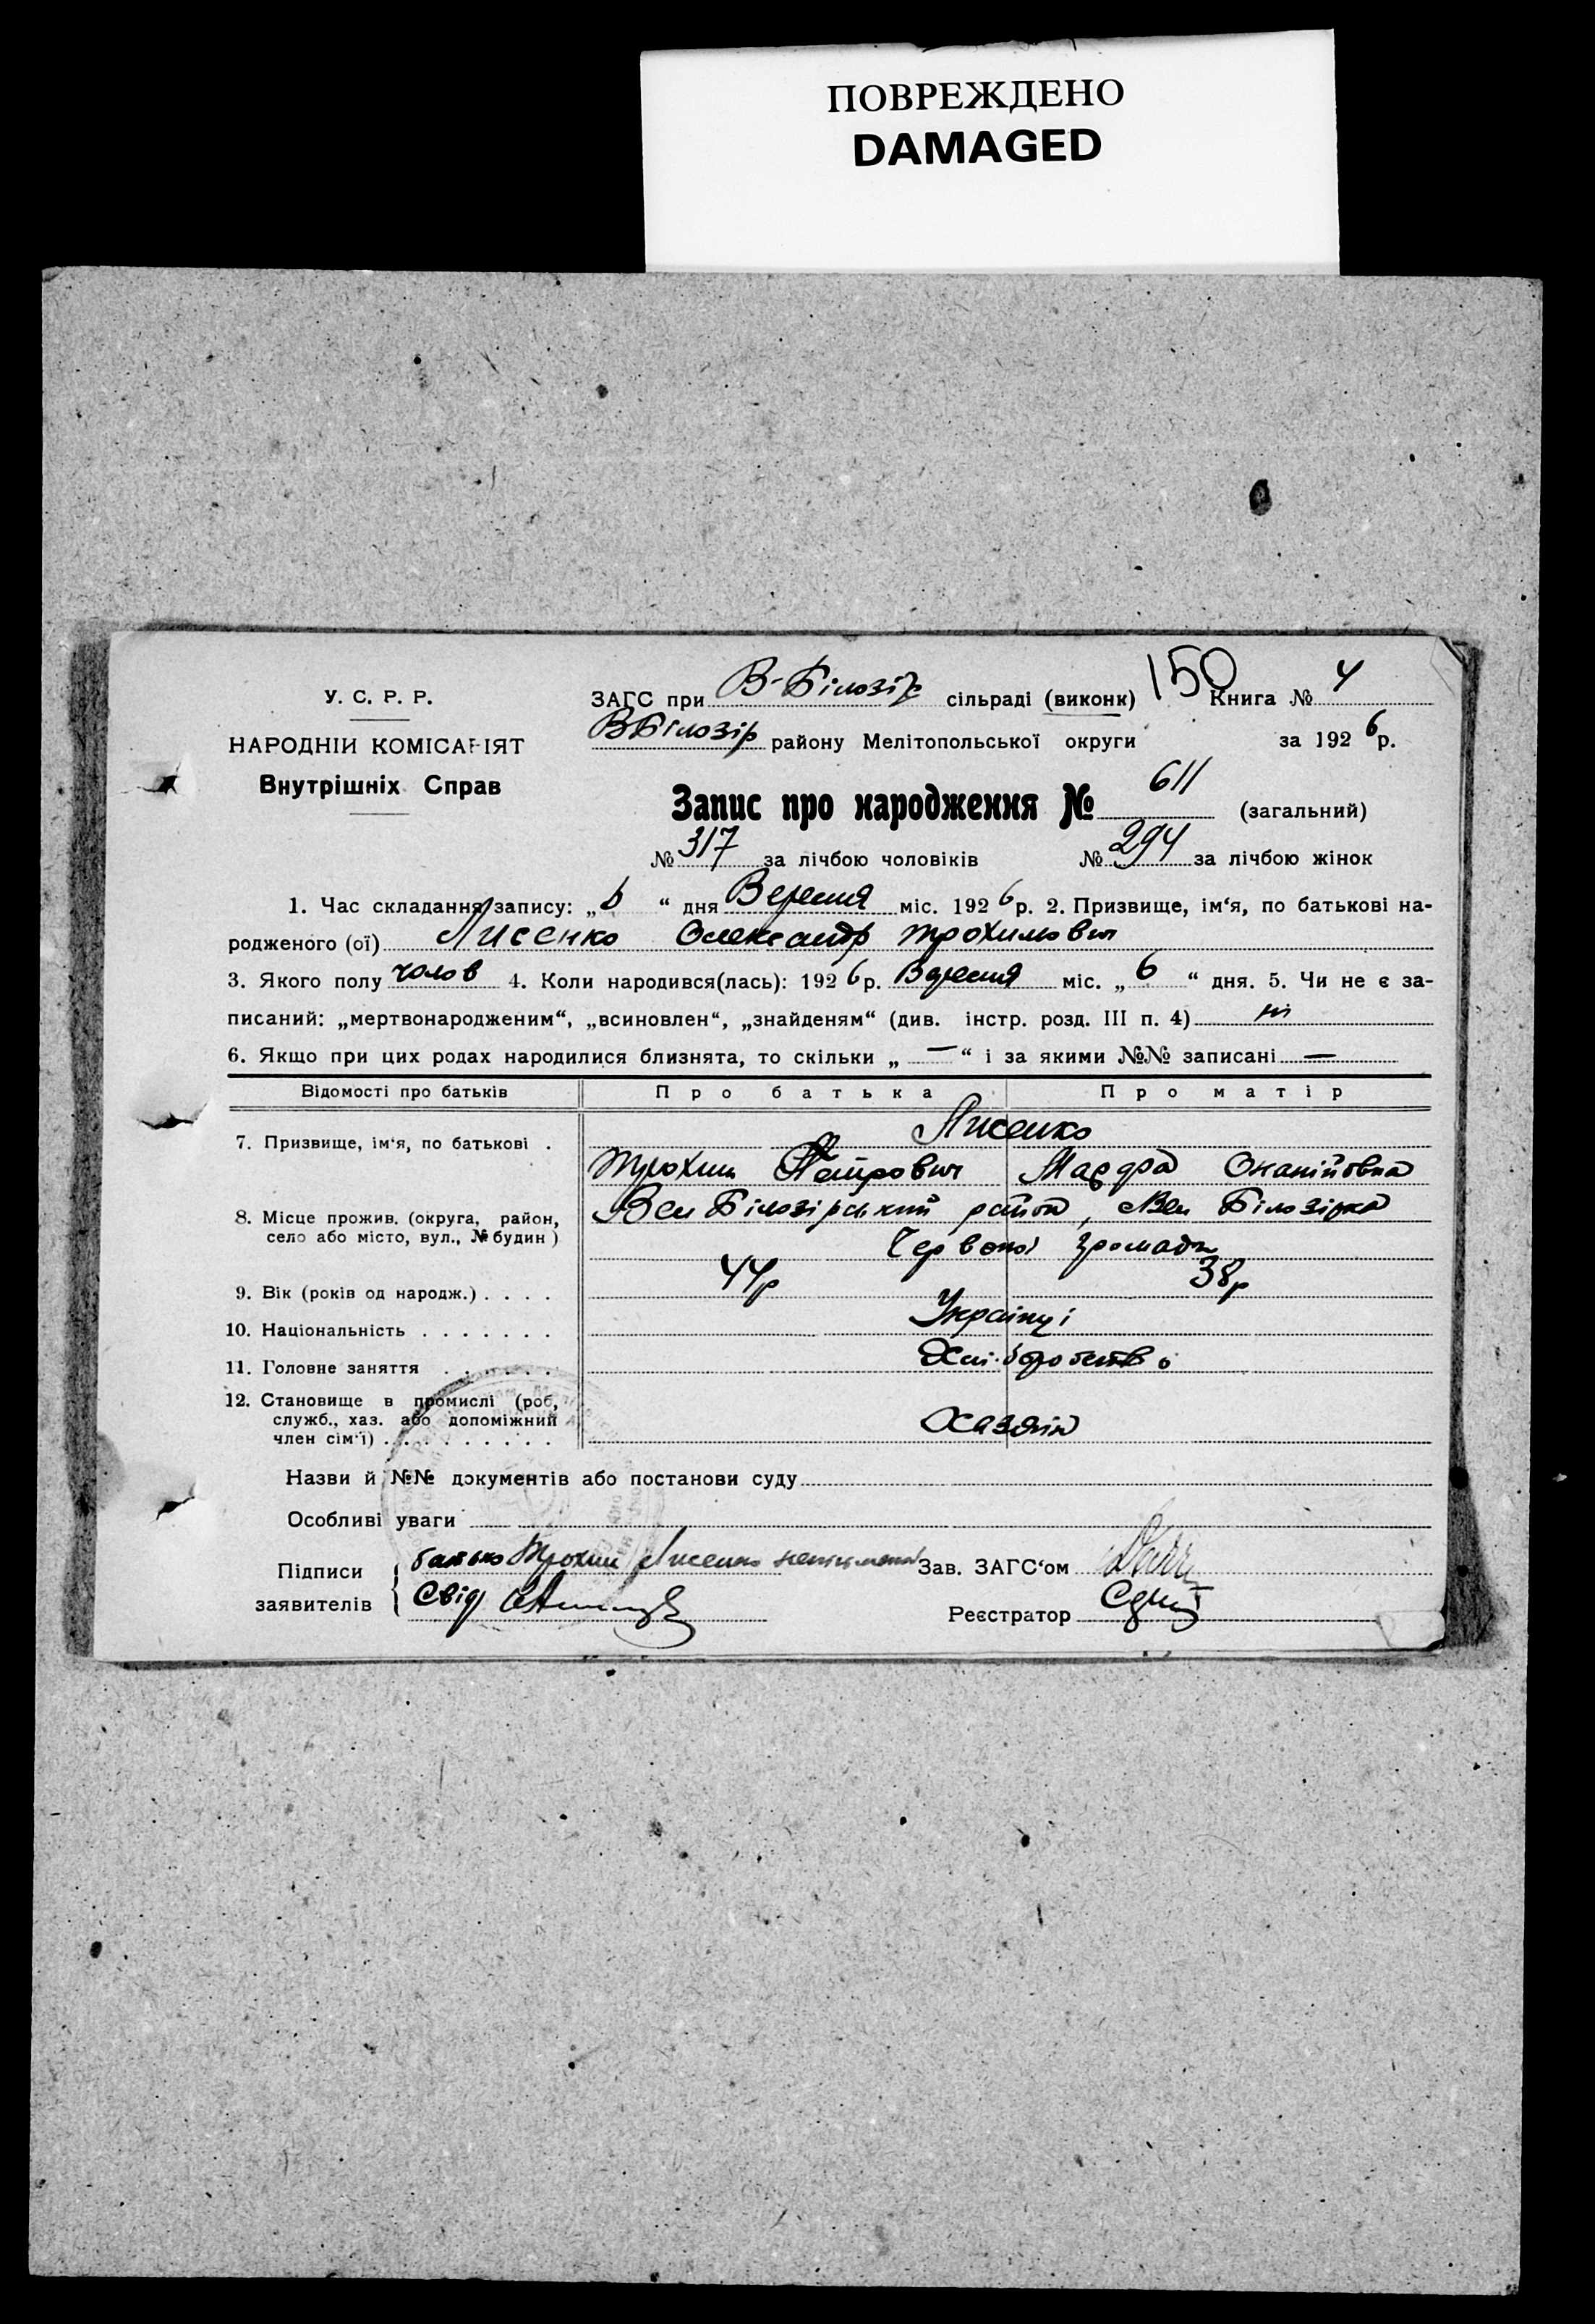 ПОВРЕЖДЕНО
DAMAGED
150
У. С. Р. Р.
ЗАГС при В-Білозір сільраді (виконк) Книга № 4
НАРОДНІИ КОМІСАРІЯТ
ВБілозір району Мелітопольської округи за 1926р.
Внутрішніх Справ
Запис про народження № 611 (загальний)
№ 317 за лічбою чоловіків № 294 за лічбою жінок
1. Час складання запису: „6“ дня Вересня міс. 1926р. 2. Призвище, ім‘я, по батькові на-
родженого (ої) Лисенко Олександр Трохимович
3. Якого полу чолов 4. Коли народився(лась): 1926р. Вересня міс. „6“ дня. 5. Чи не є за-
писаний: „мертвонародженим“, „всиновлен“, „знайденям“ (див. інстр. розд. III п. 4) ні
6. Якщо при цих родах народилися близнята, то скільки „ — “ і за якими №№ записані —
Відомості про батьків Про батька Про матір
7. Призвище, ім‘я, по батькові . Лисенко
Трохим Петрович Марфа Онаніївна
8. Місце прожив. (округа, район, Вел Білозірський район, Вел Білозірка
село або місто, вул., № будин) Червоної громади
9. Вік (років од народж.) . . . . 44р 38р
10. Національність . . . . . . . Українці
11. Головне заняття . . . . . . Хліборобство
12. Становище в промислі (роб,
служб., хаз. або допоміжний Хазяїн
член сім‘ї) . . . . . . . . . .
Назви й №№ документів або постанови суду
Особливі уваги
Підписи батько Трохим Лисенко неписьмений Зав. ЗАГС‘ом
заявителів Свід Реєстратор